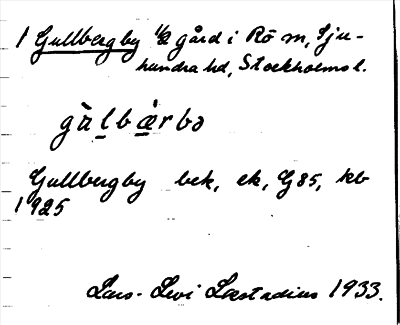 1 Gullbergby 1/2 gård i Rö sn, Sju-
hundra hd, Stockholms l.
gàlbárbə
Gullbergby bek, ek, G85, kb
1925
Lars-Levi Læstadius 1933.